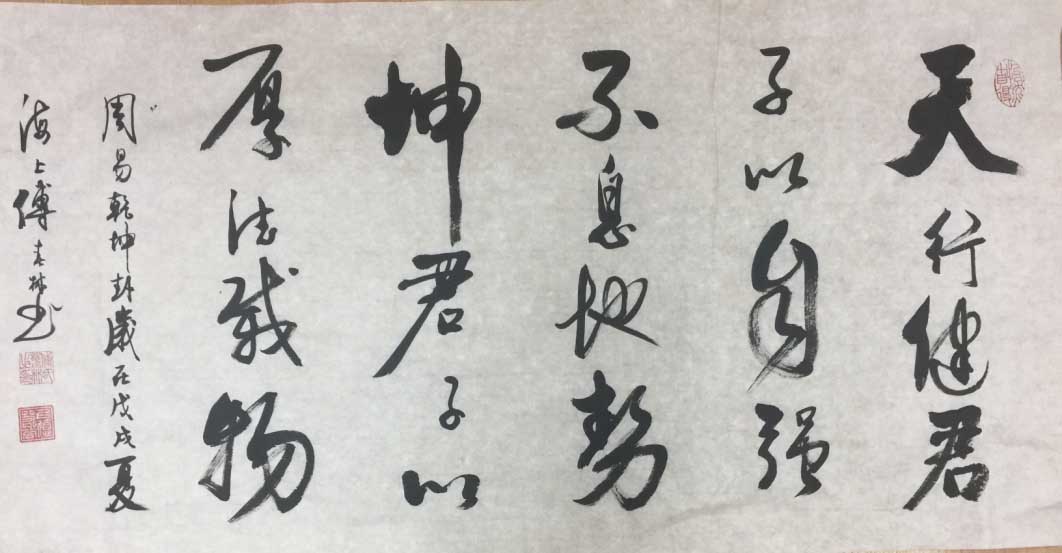 天行健君
子以自强
不息地势
坤君子以
厚德载物
周易乾坤卦岁在戊戌夏
海上傅春林书